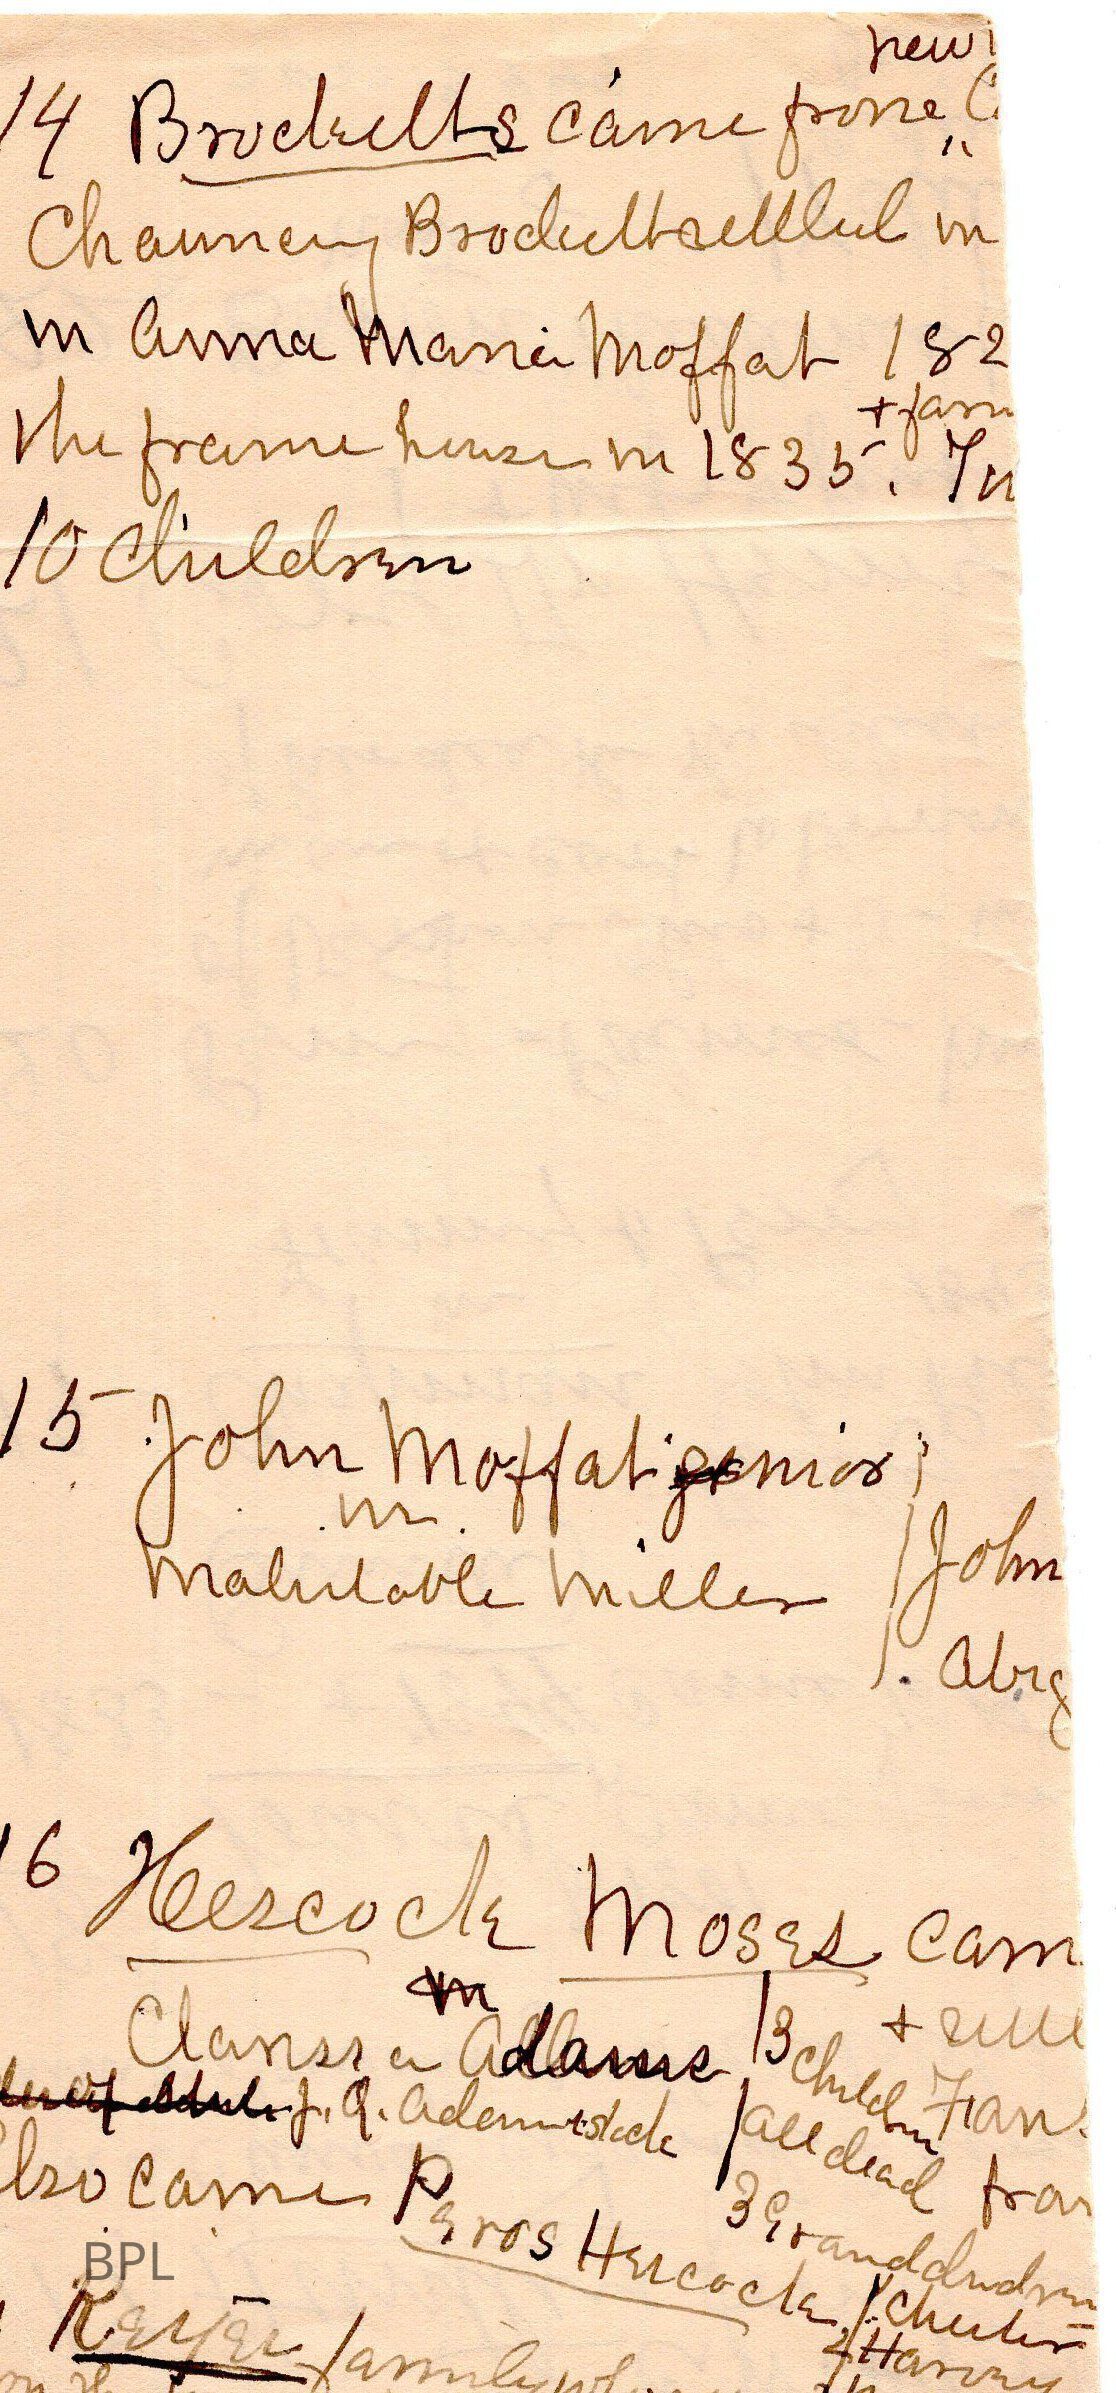 new
14 Brocketts came from
Chauncey Brockett settled in
m Anna Maria Moffat 182
+ farm
the frame house in 1835.
10 Children
15 John Moffat senior
m
Mahitable Miller
John
Abig
16 Hescock Moses cam
m
Clarissa Adams 3 children
+ settl
J. Q. Adams stock
all dead
also came Peros Hescock
3 Grandchildren
Chester
2 Harvey
BPL
Keyer family